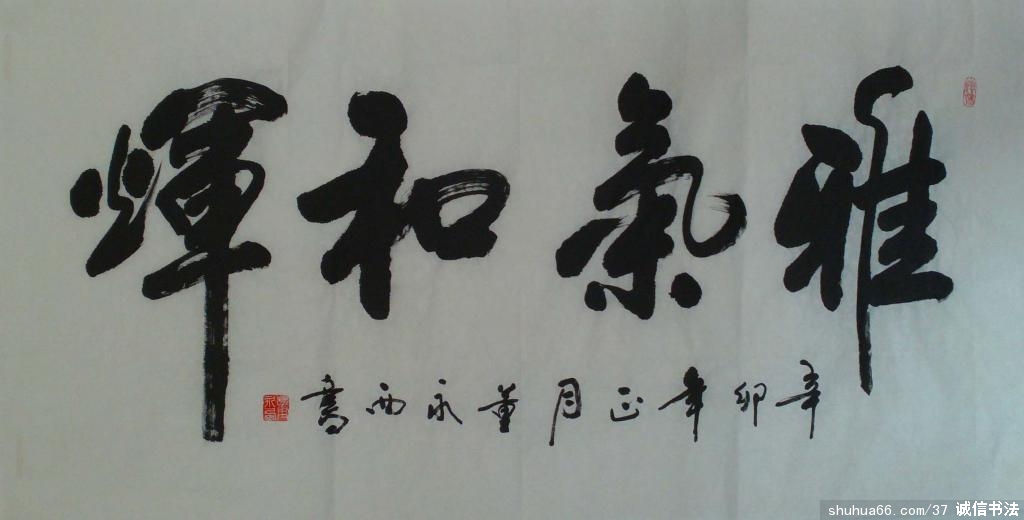 雅氣和煇
辛卯年正月董永西書
shuhua66. com/37 诚信书法